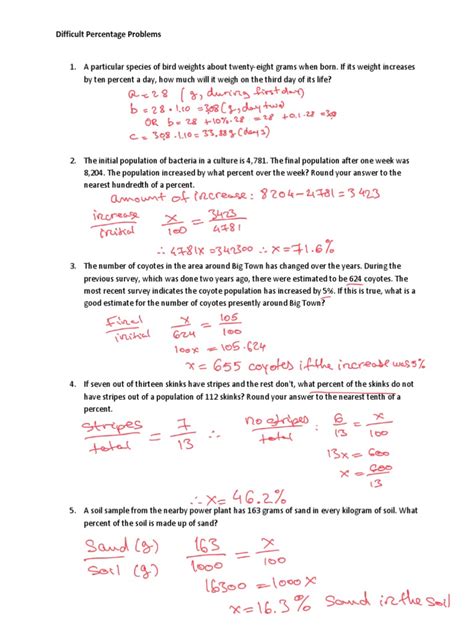 Difficult Percentage Problems
1. A particular species of bird weights about twenty-eight grams when born. If its weight increases
by ten percent a day, how much will it weigh on the third day of its life?
a = 28 (g, during first day)
b = 28 · 1.10 = 30.8 (g, day two)
OR b = 28 + 10% · 28 = 28 + 0.1 · 28 = 30.8
c = 30.8 · 1.10 = 33.88g (day 3)
2. The initial population of bacteria in a culture is 4,781. The final population after one week was
8,204. The population increased by what percent over the week? Round your answer to the
nearest hundredth of a percent.
amount of increase: 8204 - 4781 = 3423
increase / initial x / 100 = 3423 / 4781
∴ 4781x = 342300 ∴ x = 71.6%
3. The number of coyotes in the area around Big Town has changed over the years. During the
previous survey, which was done two years ago, there were estimated to be 624 coyotes. The
most recent survey indicates the coyote population has increased by 5%. If this is true, what is a
good estimate for the number of coyotes presently around Big Town?
Final / initial x / 624 = 105 / 100
100x = 105 · 624
x = 655 coyotes if the increase was 5%
4. If seven out of thirteen skinks have stripes and the rest don't, what percent of the skinks do not
have stripes out of a population of 112 skinks? Round your answer to the nearest tenth of a
percent.
stripes / total = 7 / 13 ∴ no stripes / total : 6 / 13 = x / 100
13x = 600
x = 600 / 13
∴ x = 46.2%
5. A soil sample from the nearby power plant has 163 grams of sand in every kilogram of soil. What
percent of the soil is made up of sand?
Sand (g) / Soil (g) 163 / 1000 = x / 100
16300 = 1000x
x = 16.3% sand in the soil